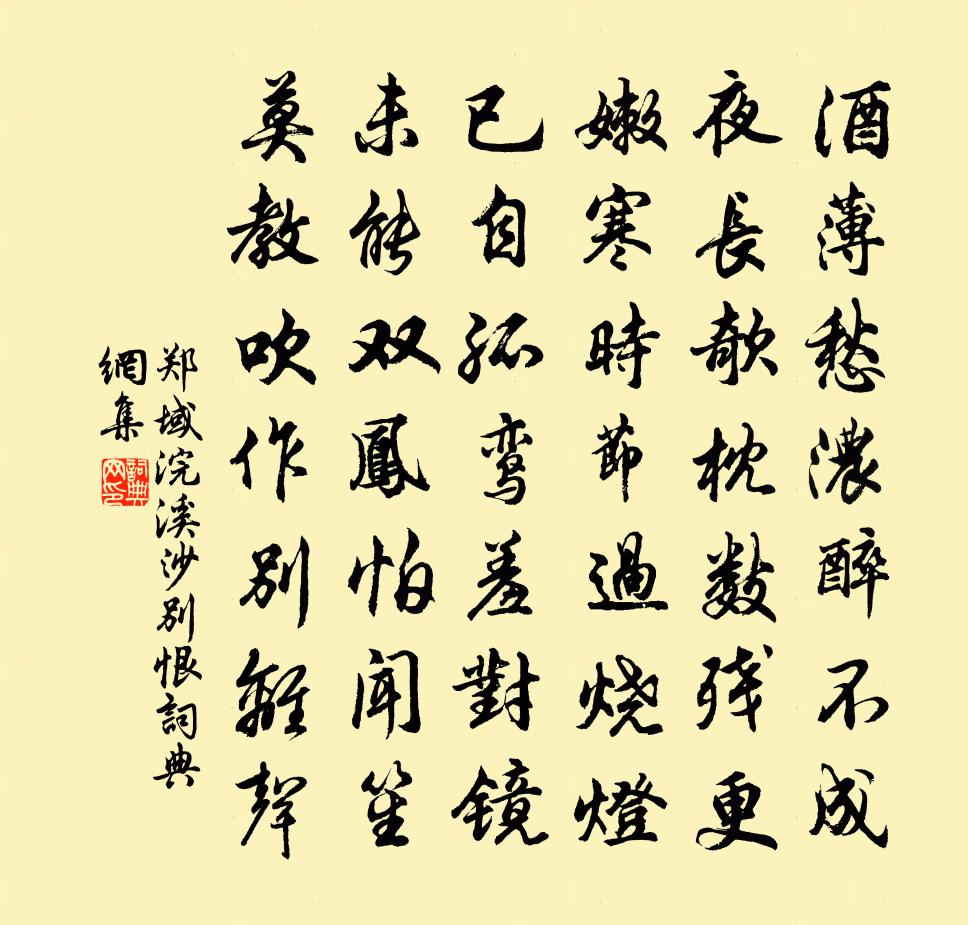 酒薄愁濃醉不成
夜長欹枕数残更
嫩寒時節過燒燈
已自孤鸾羞對镜
未能双鳳怕闻笙
莫教吹作别離聲
郑域浣溪沙别恨詞典
網集
詞典
网印